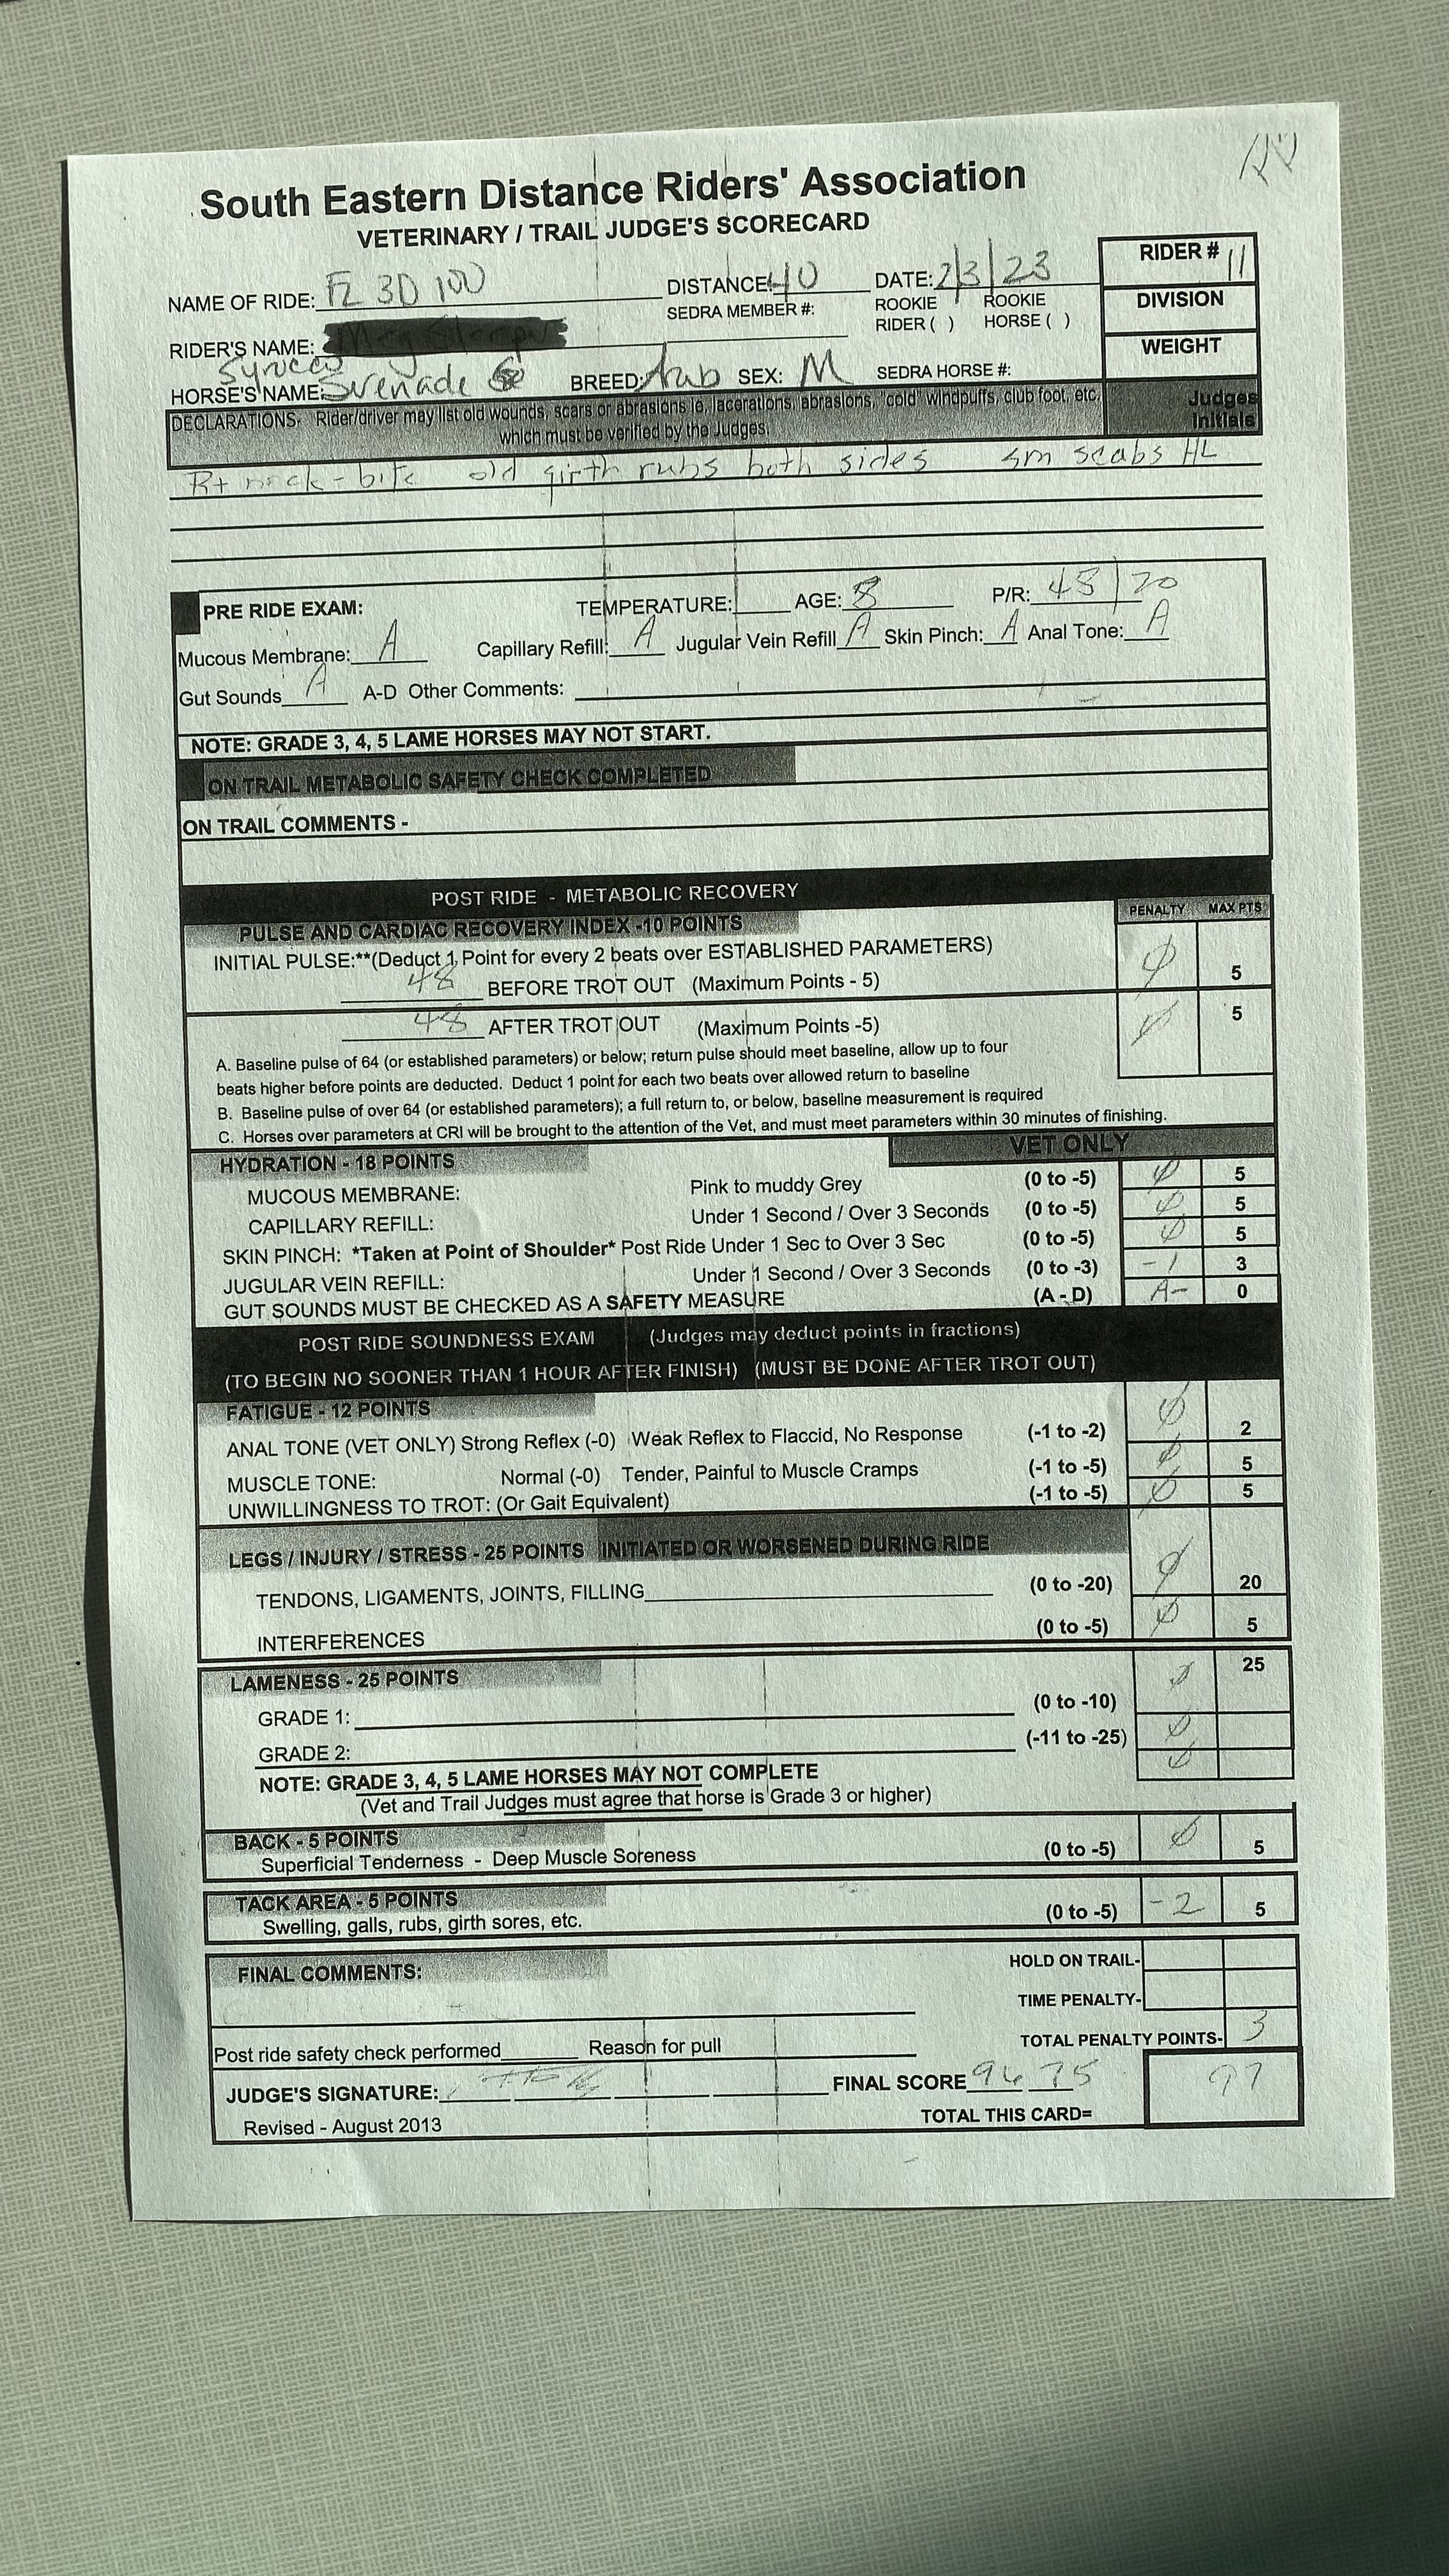 South Eastern Distance Riders' Association
VETERINARY / TRAIL JUDGE'S SCORECARD
NAME OF RIDE: FL 3D 100 DISTANCE: 40 DATE: 2/3/23 RIDER # 11
SEDRA MEMBER #: ROOKIE RIDER ( ) ROOKIE HORSE ( ) DIVISION
RIDER'S NAME: WEIGHT
Syrocco
HORSE'S NAME: Serenade BREED: Arab SEX: M SEDRA HORSE #:
DECLARATIONS- Rider/driver may list old wounds, scars or abrasions ie, lacerations, abrasions, "cold" windpuffs, club foot, etc. Judges
which must be verified by the Judges. Initials
Rt neck - bite old girth rubs both sides sm scabs HL
PRE RIDE EXAM: TEMPERATURE: AGE: 8 P/R: 48 / 20
Mucous Membrane: A Capillary Refill: A Jugular Vein Refill A Skin Pinch: A Anal Tone: A
Gut Sounds A A-D Other Comments:
NOTE: GRADE 3, 4, 5 LAME HORSES MAY NOT START.
ON TRAIL METABOLIC SAFETY CHECK COMPLETED
ON TRAIL COMMENTS -
POST RIDE - METABOLIC RECOVERY
PULSE AND CARDIAC RECOVERY INDEX -10 POINTS PENALTY MAX PTS
INITIAL PULSE:**(Deduct 1 Point for every 2 beats over ESTABLISHED PARAMETERS)
48 BEFORE TROT OUT (Maximum Points - 5) Ø 5
48 AFTER TROT OUT (Maximum Points -5) Ø 5
A. Baseline pulse of 64 (or established parameters) or below; return pulse should meet baseline, allow up to four
beats higher before points are deducted. Deduct 1 point for each two beats over allowed return to baseline
B. Baseline pulse of over 64 (or established parameters); a full return to, or below, baseline measurement is required
C. Horses over parameters at CRI will be brought to the attention of the Vet, and must meet parameters within 30 minutes of finishing.
HYDRATION - 18 POINTS VET ONLY
MUCOUS MEMBRANE: Pink to muddy Grey (0 to -5) Ø 5
CAPILLARY REFILL: Under 1 Second / Over 3 Seconds (0 to -5) Ø 5
SKIN PINCH: *Taken at Point of Shoulder* Post Ride Under 1 Sec to Over 3 Sec (0 to -5) Ø 5
JUGULAR VEIN REFILL: Under 1 Second / Over 3 Seconds (0 to -3) -1 3
GUT SOUNDS MUST BE CHECKED AS A SAFETY MEASURE (A - D) A- 0
POST RIDE SOUNDNESS EXAM (Judges may deduct points in fractions)
(TO BEGIN NO SOONER THAN 1 HOUR AFTER FINISH) (MUST BE DONE AFTER TROT OUT)
FATIGUE - 12 POINTS
ANAL TONE (VET ONLY) Strong Reflex (-0) Weak Reflex to Flaccid, No Response (-1 to -2) Ø 2
MUSCLE TONE: Normal (-0) Tender, Painful to Muscle Cramps (-1 to -5) Ø 5
UNWILLINGNESS TO TROT: (Or Gait Equivalent) (-1 to -5) Ø 5
LEGS / INJURY / STRESS - 25 POINTS INITIATED OR WORSENED DURING RIDE
TENDONS, LIGAMENTS, JOINTS, FILLING (0 to -20) Ø 20
INTERFERENCES (0 to -5) Ø 5
LAMENESS - 25 POINTS 25
GRADE 1: (0 to -10) Ø
GRADE 2: (-11 to -25) Ø
NOTE: GRADE 3, 4, 5 LAME HORSES MAY NOT COMPLETE Ø
(Vet and Trail Judges must agree that horse is Grade 3 or higher)
BACK - 5 POINTS
Superficial Tenderness - Deep Muscle Soreness (0 to -5) Ø 5
TACK AREA - 5 POINTS
Swelling, galls, rubs, girth sores, etc. (0 to -5) -2 5
FINAL COMMENTS: HOLD ON TRAIL-
TIME PENALTY-
TOTAL PENALTY POINTS- 3
Post ride safety check performed Reason for pull
JUDGE'S SIGNATURE: FINAL SCORE 96 75 97
Revised - August 2013 TOTAL THIS CARD=